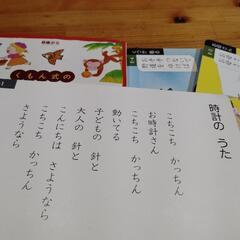 時計の うた
こちこち かっちん
お時計さん
こちこち かっちん
動いてる
子どもの 針と
大人の 針と
こんにちは さようなら
こちこち かっちん
さようなら
くもん式の